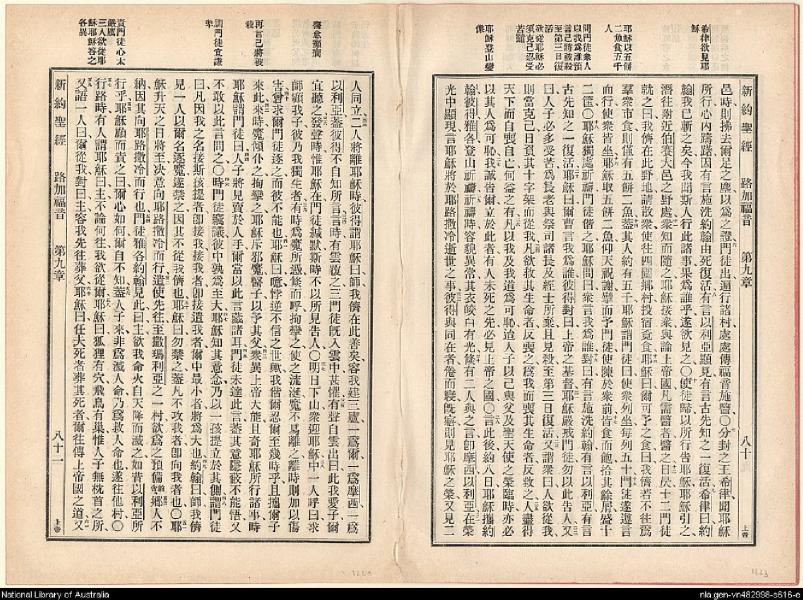 新約聖經 路加福音 第九章 八十 上帝
希律欲見耶
穌
耶穌以五餅
二魚食五千
問門徒衆人
以我爲誰預
言己將被殺
至第三日復
活
欲從耶穌必
須克己忍受
苦難
耶穌登山變
像
邑時則拂去爾足之塵以爲之證門徒出遍行諸村處處傳福音施醫〇分封之王希律聞耶穌
所行心內躊躇因有言施洗約翰由死復活有言以利亞顯見有言古先知之一復活希律曰約
翰我已斬之矣今我聞斯人行此諸事果爲誰乎遂欲見之〇使徒歸以所行告耶穌耶穌引之
潛往附近伯賽大邑之野處衆知而隨之耶穌接衆與論上帝國凡需醫者醫之日昃十二門徒
就之曰我儕在此野地請散衆使往四圍鄉村投宿覓食耶穌曰爾可予之食曰我儕若不往爲
羣衆市食則僅有五餅二魚蓋其人約有五千耶穌謂門徒曰使衆列坐每列五十門徒遂遵言
而行使衆皆坐耶穌取五餅二魚仰天祝謝擘而予門徒使陳於衆前皆食而飽拾其餘屑盛十
二筐〇耶穌獨處祈禱門徒偕之耶穌問曰衆言我爲誰對曰有言施洗約翰有言以利亞有言
古先知之一復活耶穌曰爾曹言我爲誰彼得對曰上帝之基督耶穌嚴戒門徒勿以此告人又
曰人子必多受苦爲長老與祭司諸長及經士所棄且見殺至第三日復活又謂衆曰人欲從我
則當克己日負其十字架而從我凡欲救其生命者反喪之爲我而喪其生命者反救之人盡得
天下而自喪自亡何益之有凡以我及我道爲可恥迨人子以己與父及聖天使之榮臨時亦必
以其人爲可恥我誠告爾立於此者有人未死之先必見上帝之國〇言此後約八日耶穌攜約
翰彼得雅各登山祈禱祈禱時容貌異常其衣皎白有光倐有二人與之言卽摩西以利亞在榮
光中顯現言耶穌將於耶路撒冷逝世之事彼得與同在者倦而寢旣寤則見耶穌之榮又見二
齋愈癲癇
再言己將被
殺
訓門徒宜謙
卑
責門徒心太
嚴厲
三人欲從耶
穌耶穌答之
各異
人同立二人將離耶穌時彼得謂耶穌曰師我儕在此善矣容我建三廬一爲爾一爲摩西一爲
以利亞蓋彼得不自知所言言時有雲覆之三門徒旣入雲中甚懼有聲自雲出曰此我愛子爾
宜聽之發聲時惟耶穌在門徒緘默斯時不以所見告人〇明日下山衆迎耶穌中一人呼曰求
師顧我子彼乃我獨生者有時爲魔所憑倐而呼拘攣之使之流涎魔不易離之離時則加以傷
害曾求爾門徒逐之而彼不能也耶穌曰噫悖逆不信之世歟我偕爾忍爾至幾時乎且攜爾子
來此來時魔傾仆之拘攣之耶穌斥邪魔醫子以予其父衆異上帝大能且奇耶穌所行諸事時
耶穌謂門徒曰人子將見賣於人手爾當以此言識諸耳門徒未達此言蓋其意隱故不能悟又
不敢以此言問之〇時門徒竊議彼中孰爲至大耶穌知其意念乃以一孩提立於其側謂門徒
曰凡因我之名接斯孩提者卽接我接我者卽接遣我者爾中最小者將爲大也約翰曰師我儕
見一人以爾名逐魔遂禁之因其不從我儕也耶穌曰勿禁之蓋人不攻我者卽向我者也〇耶
穌升天之日將至决意向耶路撒冷而行遣使先往至撒瑪利亞之一村欲爲之預備鄉人不
納因其向耶路撒冷而行也門徒雅各約翰見此曰主欲我命火自天降而滅之如昔以利亞所
行乎耶穌顧而責之曰爾心如何爾自不知蓋人子來非爲滅人命乃爲救人命也遂往他村〇
行路時有人謂耶穌曰主不論何往我欲從爾耶穌曰狐狸有穴飛鳥有巢惟人子無枕首之所
又語一人曰爾從我對曰主容我先往葬父耶穌曰任死者葬其死者爾往傳上帝國之道又
新約聖經 路加福音 第九章 八十一 上帝
National Library of Australia
nla.gen-vn482998-s616-e